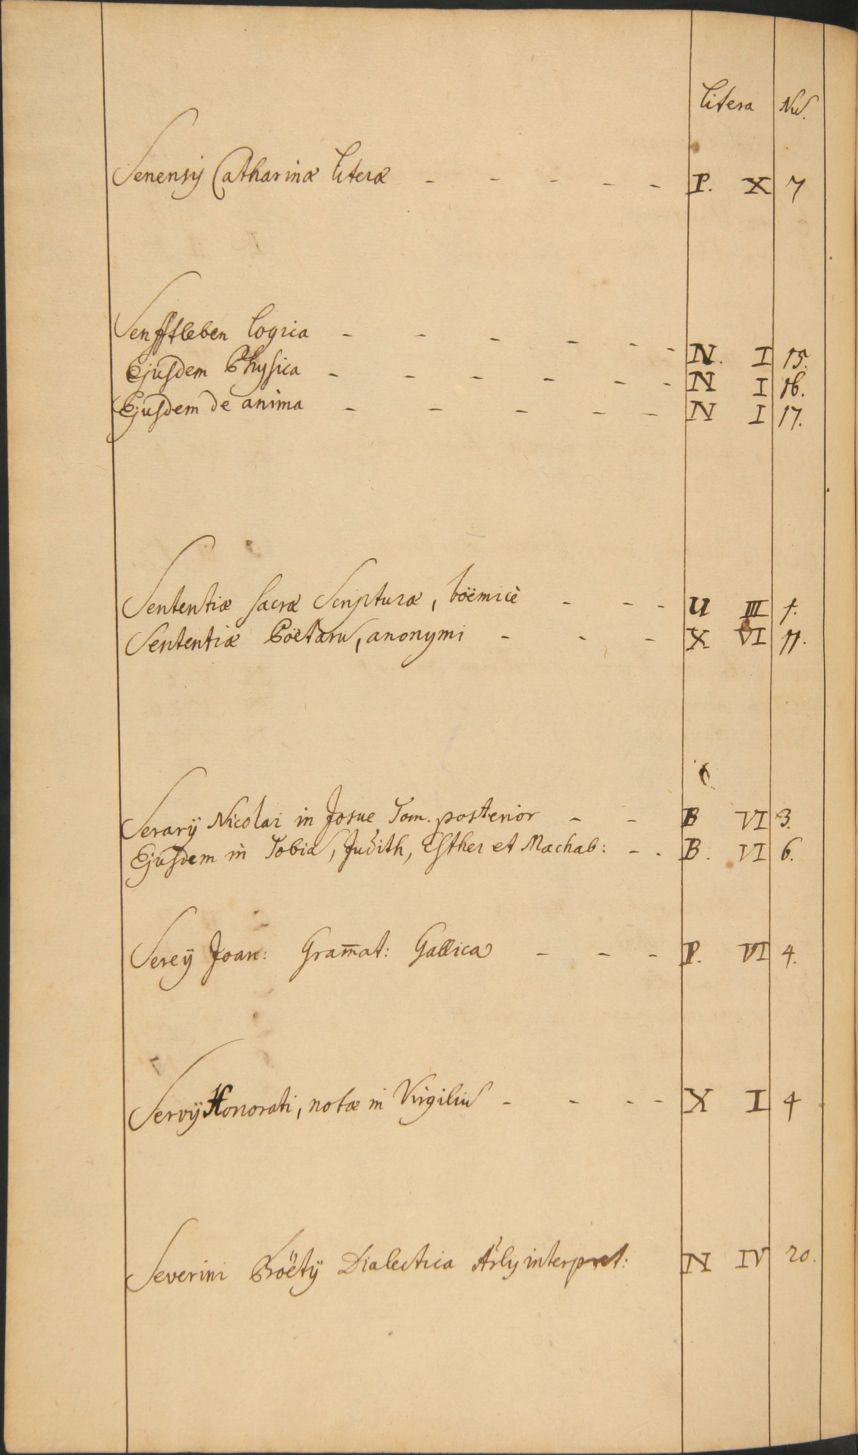 Litera Nu̅.
Senensis Catharinæ literæ - - - - - P. X 7
Senfftleben Logica - - - - - - N. I 15.
Ejusdem Physica - - - - - - N I 16.
Ejusdem de anima - - - - - N I 17.
Sententiæ sacræ Scripturæ, boëmicè - - - U III 1.
Sententiæ Poëtarū, anonymi - - - X VI 11.
Serarÿ Nicolai in Josue Tom. posterior - - B VI 3.
Ejusdem in Tobiā, Judith, Esther et Machab: - - B. VI 6.
Sereÿ Joan: Gram̅at: Gallica - - - P. VI 4.
Servÿ Honorati, notæ in Virgiliū - - - - X I 4
Severini Boëtÿ Dialectica interpret: N IV 20.